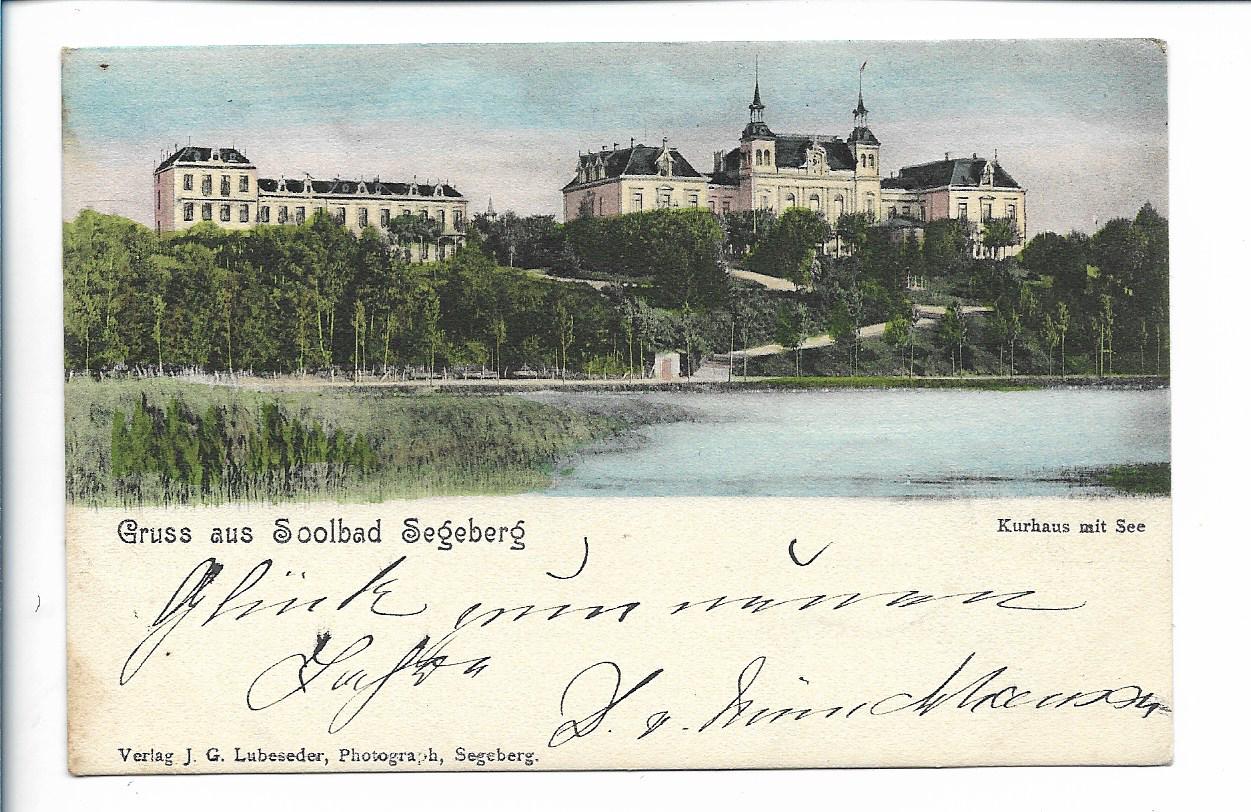 Gruss aus Soolbad Segeberg
Kurhaus mit See
Glück zum neuen
Jahre
v.
Verlag J. G. Lubeseder, Photograph, Segeberg.